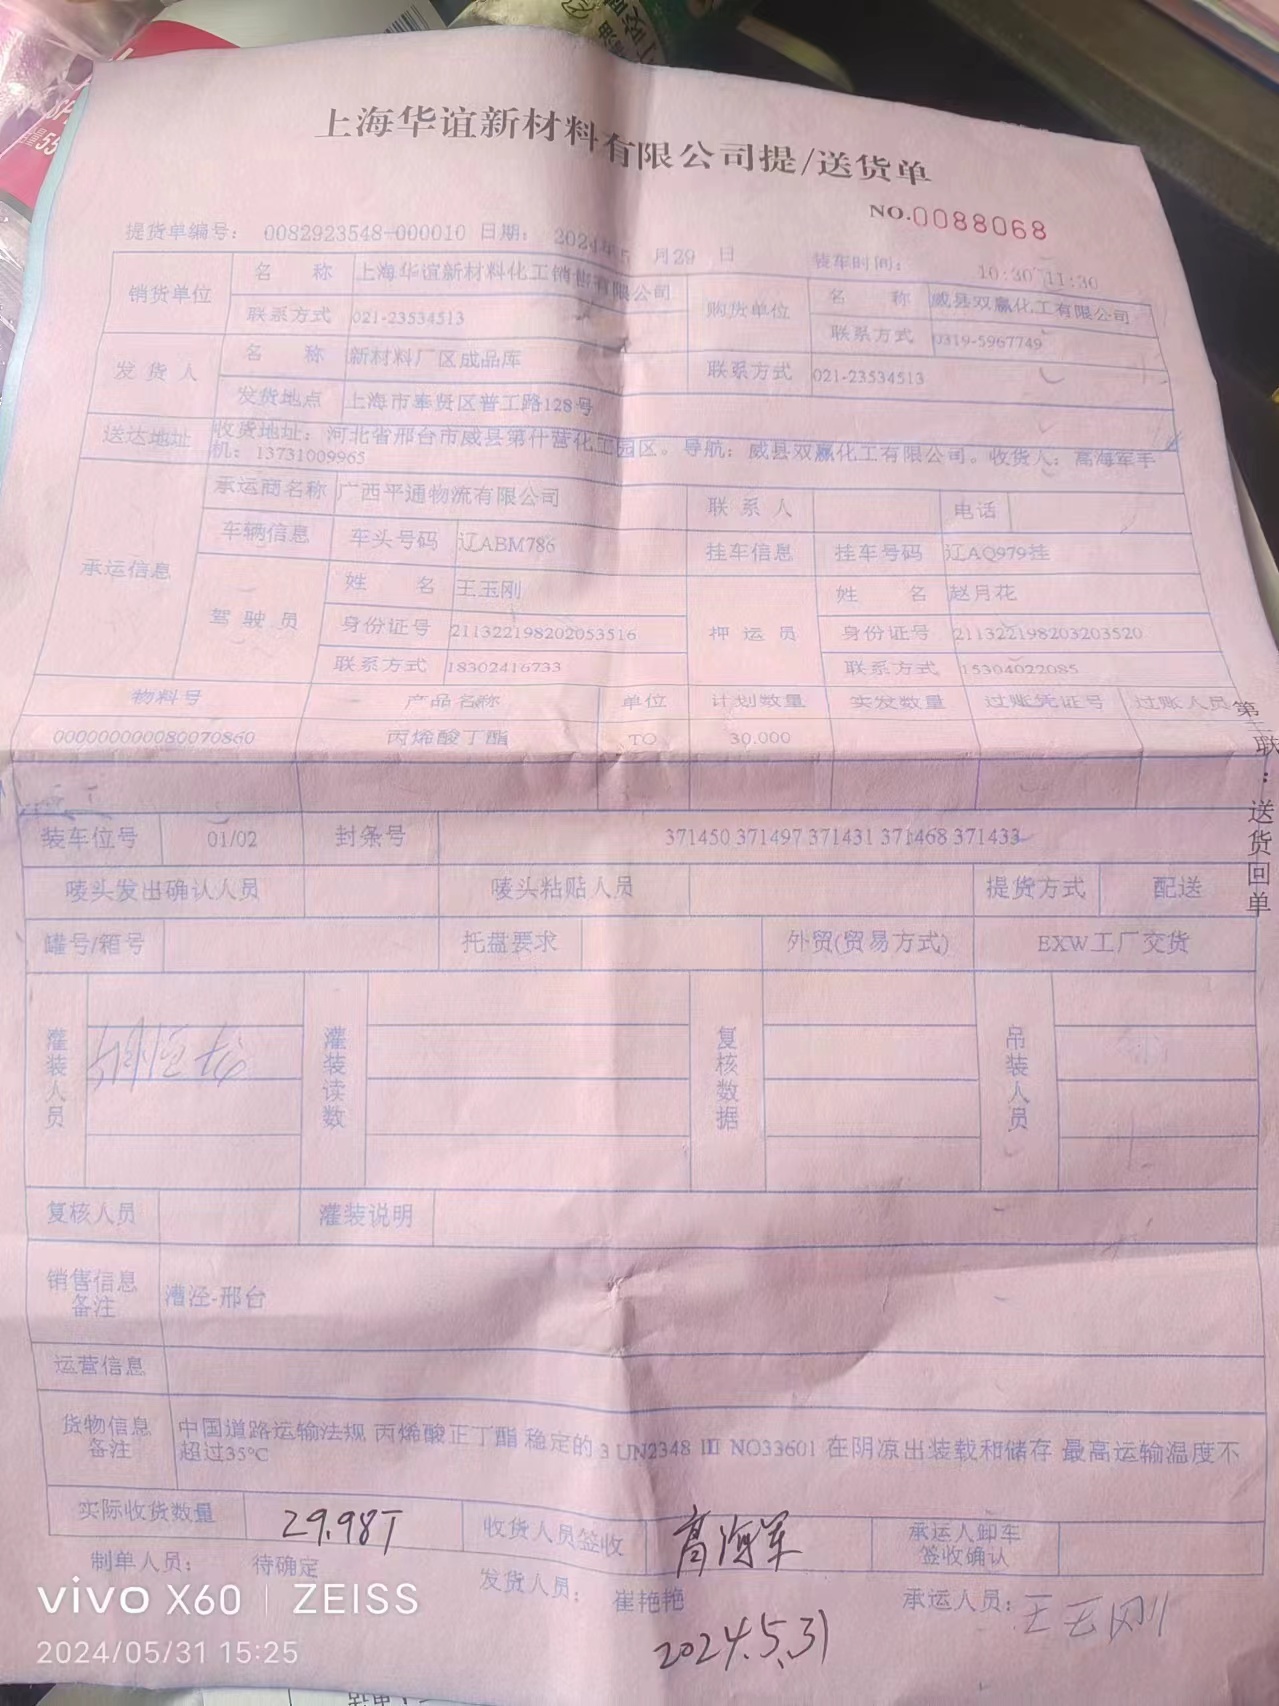 上海华谊新材料有限公司提/送货单
NO.0088068
提货单编号: 0082923548-000010 日期: 2024年5月29日 装车时间: 10:30 11:30
销货单位 名 称 上海华谊新材料化工销售有限公司 购货单位 名 称 威县双赢化工有限公司
联系方式 021-23534513 联系方式 0319-5967749
发货人 名 称 新材料厂区成品库 联系方式 021-23534513
发货地点 上海市奉贤区普工路128号
送达地址 收货地址:河北省邢台市威县第什营化工园区。导航:威县双赢化工有限公司。收货人:高海军手
机:13731009965
承运信息 承运商名称 广西平通物流有限公司 联系人 电话
车辆信息 车头号码 辽ABM786 挂车信息 挂车号码 辽AQ979挂
驾驶员 姓 名 王玉刚 押运员 姓 名 赵月花
身份证号 211322198202053516 身份证号 211322198203203520
联系方式 18302416733 联系方式 15304022085
物料号 产品名称 单位 计划数量 实发数量 过账凭证号 过账人员
000000000080070860 丙烯酸丁酯 TO 30.000
第三联:送货回单
装车位号 01/02 封条号 371450 371497 371431 371468 371433
唛头发出确认人员 唛头粘贴人员 提货方式 配送
罐号/箱号 托盘要求 外贸(贸易方式) EXW工厂交货
灌装人员 灌装读数 复核数据 吊装人员
复核人员 灌装说明
销售信息备注 漕泾-邢台
运营信息
货物信息备注 中国道路运输法规 丙烯酸正丁酯 稳定的 3 UN2348 III NO33601 在阴凉出装载和储存 最高运输温度不
超过35°C
实际收货数量 29.98T 收货人员签收 高海军 承运人卸车签收确认
制单人员: 待确定 发货人员: 崔艳艳 承运人员: 王玉刚
2024.5.31
vivo X60 | ZEISS
2024/05/31 15:25